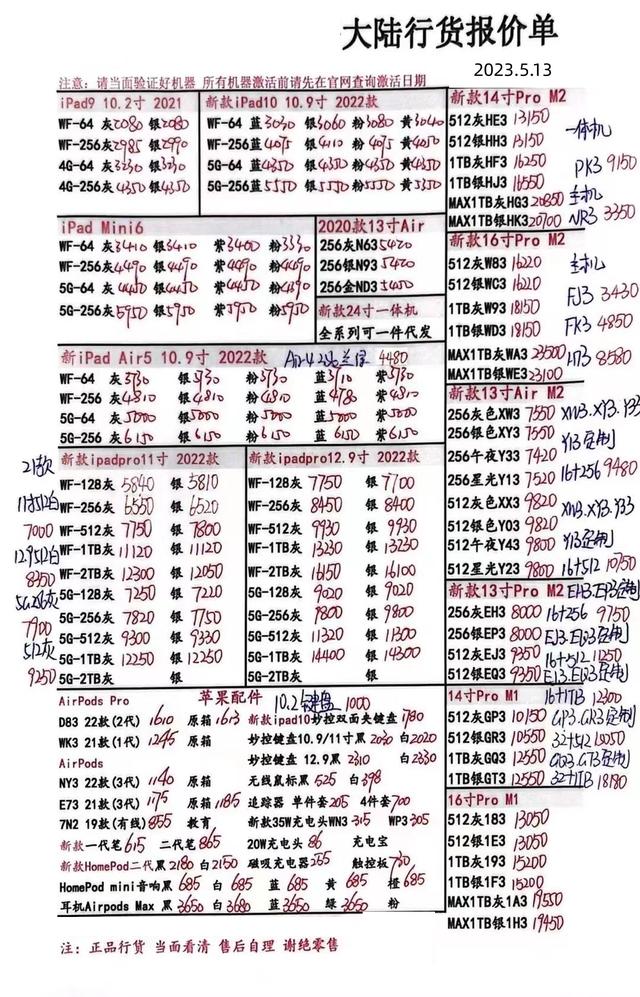 大陆行货报价单
2023.5.13
注意：请当面验证好机器 所有机器激活前请先在官网查询激活日期
iPad9 10.2寸 2021
WF-64 灰2080 银2080
WF-256灰2985 银2990
4G-64 灰3230 银3230
4G-256灰4350 银4350
新款iPad10 10.9寸 2022款
WF-64 蓝3030 银3060 粉3080 黄3040
WF-256蓝4075 银4110 粉4075 黄4050
5G-64 蓝4350 银4350 粉4350 黄4350
5G-256蓝5550 银5550 粉5550 黄5350
iPad Mini6
WF-64 灰3410 银3410 紫3400 粉3330
WF-256灰4490 银4490 紫4490 粉4490
5G-64 灰4450 银4450 紫4450 粉4390
5G-256灰5950 银5950 紫5950 粉5950
2020款13寸Air
256灰N63 5420
256银N93 5420
256金ND3 5450
新款24寸一体机
全系列可一件代发
新iPad Air5 10.9寸 2022款
4480
WF-64 灰3730 银3730 粉3730 蓝3710 紫3730
WF-256 灰4810 银4810 粉4810 蓝4780 紫4810
5G-64 灰5000 银5000 粉5000 蓝5000 紫5000
5G-256 灰6150 银6150 粉6150 蓝6150 紫6150
新款ipadpro11寸 2022款
WF-128灰 5840 银 5810
WF-256灰 6550 银 6520
WF-512灰 7750 银 7800
WF-1TB灰 11120 银 11120
WF-2TB灰 12300 银 12050
5G-128灰 7250 银 7220
5G-256灰 7820 银 7750
5G-512灰 9300 银 9330
5G-1TB灰 12250 银 12250
5G-2TB灰 银
21款
11寸512白
7000
12.9512白
8350
5G256灰
7900
512灰
9250
新款ipadpro12.9寸 2022款
WF-128灰 7750 银 7700
WF-256灰 8450 银 8400
WF-512灰 9930 银 9930
WF-1TB灰 13230 银 13230
WF-2TB灰 16150 银 16100
5G-128灰 9020 银 9020
5G-256灰 9800 银 9800
5G-512灰 11320 银 11300
5G-1TB灰 14400 银 14300
5G-2TB灰 银
AirPods Pro 苹果配件 10.2键盘 1000
D83 22款(2代) 1610 原箱1613 新款ipad10妙控双面夹键盘1780
WK3 21款(1代) 1245 原箱 妙控键盘10.9/11寸黑2030 白2020
AirPods 妙控键盘 12.9黑 2310 白2330
NY3 22款(3代) 1140 原箱 无线鼠标黑525 白398
E73 21款(3代) 1175 原箱1185 追踪器 单件套205 4件套700
7N2 19款(有线)855 教育 新款35W充电头WN3 315 WP3 305
新款一代笔615 二代笔865 20W充电头 86 充电宝
新款HomePod二代黑2180 白2150 磁吸充电器255 触控板730
HomePod mini音响黑 685 白 685 蓝 685 黄 685 橙685
耳机Airpods Max 黑3650 白3680 蓝3650 绿3650 粉
注：正品行货 当面看清 售后自理 谢绝零售
新款14寸Pro M2
512灰HE3 13150
512银HH3 13150
1TB灰HF3 16250
1TB银HJ3 16550
MAX1TB灰HG3 20850
MAX1TB银HK3 20700
一体机
PK3 9150
主机
NR3 3350
新款16寸Pro M2
512灰W83 16220
512银WC3 16220
1TB灰W93 18150
1TB银WD3 18150
MAX1TB灰WA3 23500
MAX1TB银WE3 23100
主机
FJ3 3430
FK3 4850
H73 8580
新款13寸Air M2
256灰色XW3 7550
256银色XY3 7550
256午夜Y33 7420
256星光Y13 7520
512灰色XX3 9820
512银色Y03 9820
512午夜Y43 9800
512星光Y23 9800
XW3.XY3.Y33
Y13定制
16+256 9480
XW3.XY3.Y33
Y13定制
16+512 10750
新款13寸Pro M2
256灰EH3 8000
256银EP3 8000
512灰EJ3 9350
512银EQ3 9350
EH3.EP3定制
16+256 9750
EJ3.EQ3定制
16+512 11250
EJ3.EQ3定制
16+1TB 12300
14寸Pro M1
512灰GP3 10150
512银GR3 10550
1TB灰GQ3 12550
1TB银GT3 12550
GP3.GR3定制
32+512 13050
GQ3.GT3定制
32+1TB 18180
16寸Pro M1
512灰183 13050
512银1E3 13050
1TB灰193 15200
1TB银1F3 15200
MAX1TB灰1A3 19550
MAX1TB银1H3 19450